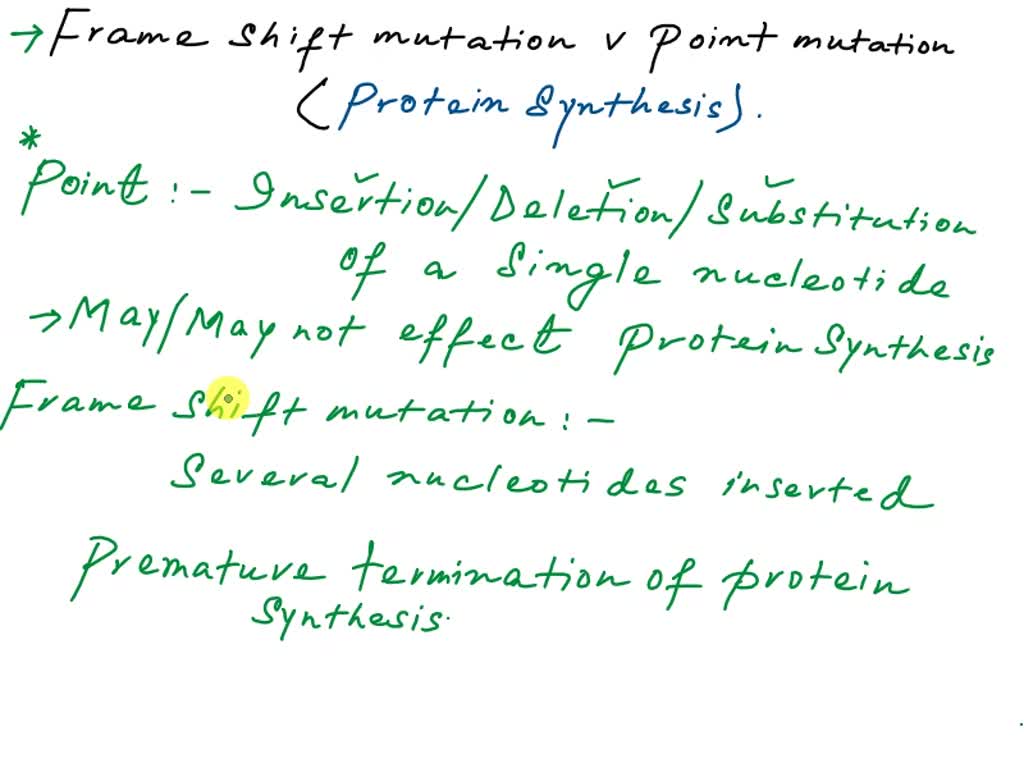 → Frame shift mutation v Point mutation
(Protein Synthesis).
*
Point :- Insertion/Deletion/Substitution
of a Single nucleotide
→ May/May not effect Protein Synthesis
Frame shift mutation :-
Several nucleotides inserted
Premature termination of protein
Synthesis.